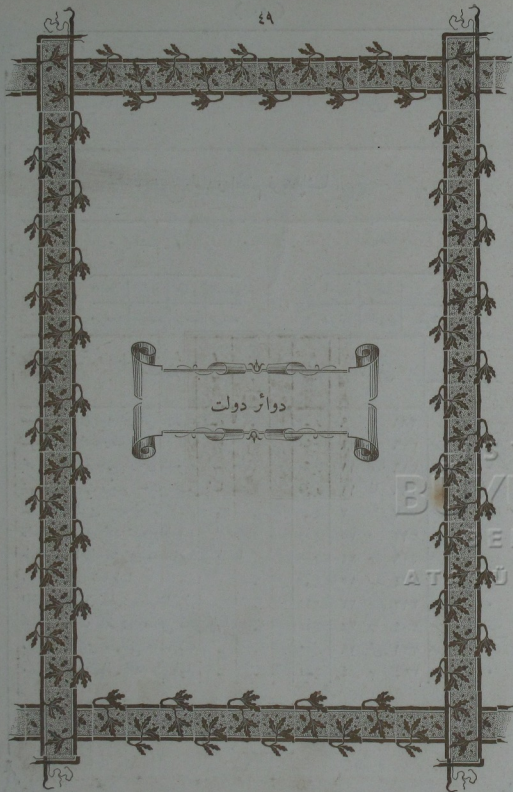 ٤٩
دوائر دولت